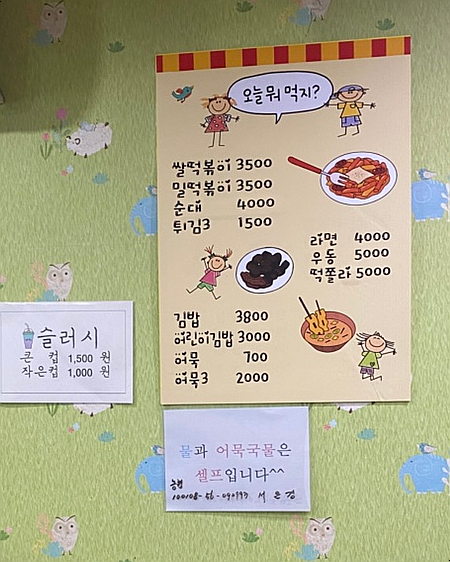 오늘 뭐 먹지?
쌀떡볶이 3500
밀떡볶이 3500
순대 4000
튀김3 1500
라면 4000
우동 5000
떡쫄라 5000
김밥 3800
어린이김밥 3000
어묵 700
어묵3 2000
슬러시
큰 컵 1,500 원
작은컵 1,000 원
물과 어묵국물은
셀프입니다^^
서은경